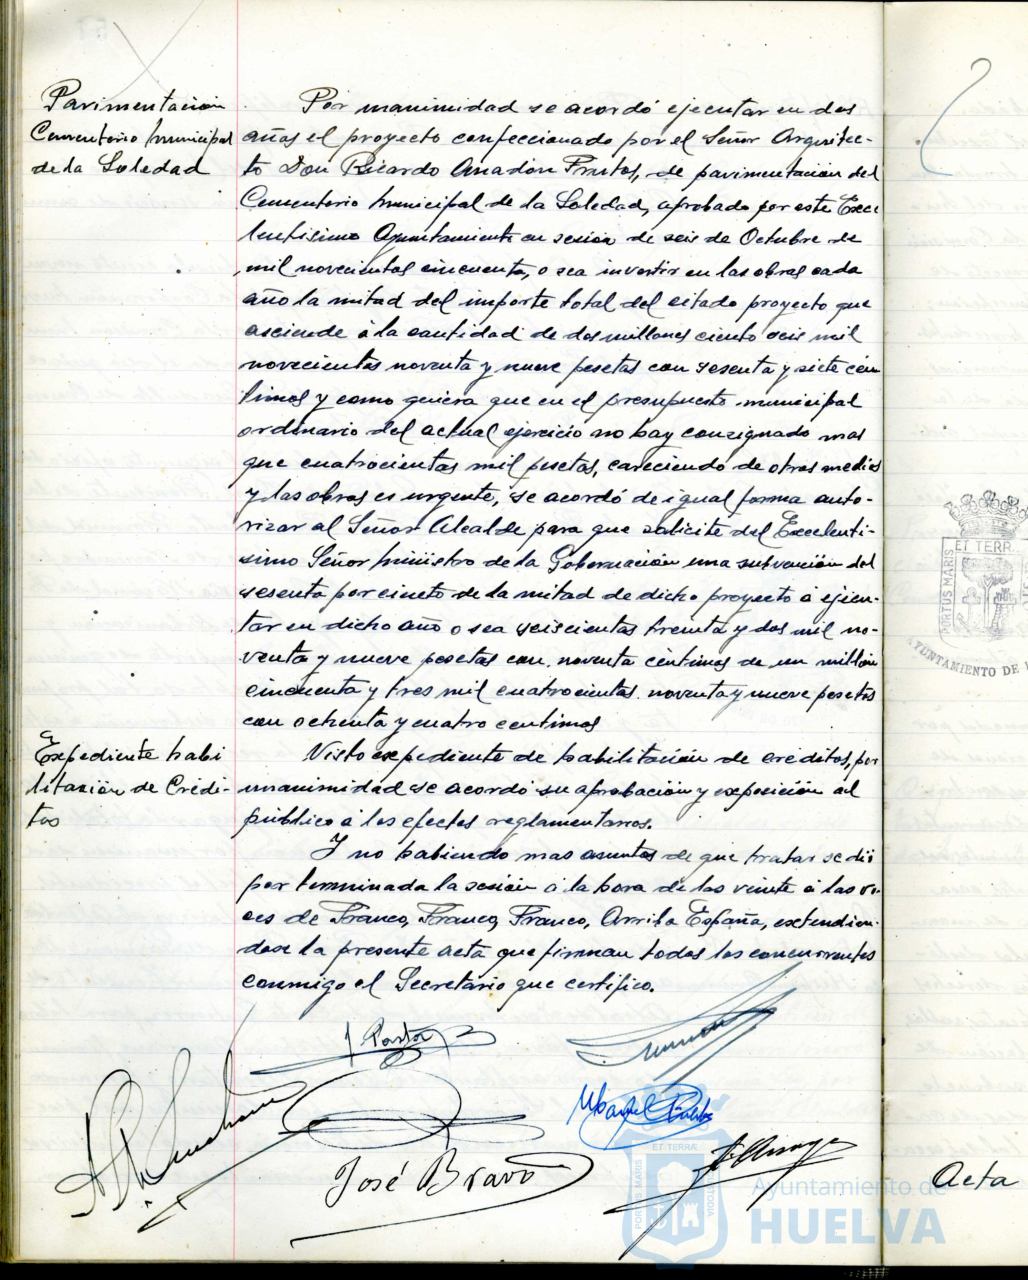 Pavimentación
Cementerio Municipal
de la Soledad
Por unanimidad se acordó ejecutar en dos
años el proyecto confeccionado por el Señor Arquitec-
to Don Ricardo Anadón Frutos, de pavimentación del
Cementerio Municipal de la Soledad, aprobado por este Exce
lentísimo Ayuntamiento en sesión de seis de Octubre de
mil novecientos cincuenta, o sea invertir en las obras cada
año la mitad del importe total del citado proyecto que
asciende á la cantidad de dos millones ciento seis mil
novecientas noventa y nueve pesetas con sesenta y siete cén
timos y como quiera que en el presupuesto municipal
ordinario del actual ejercicio no hay consignado mas
que cuatrocientas mil pesetas, careciendo de otros medios
y las obras es urgente, se acordó de igual forma auto-
rizar al Señor Alcalde para que solicite del Excelentí-
simo Señor Ministro de la Gobernación una subvención del
sesenta por ciento de la mitad de dicho proyecto a ejecu-
tar en dicho año o sea seiscientas treinta y dos mil no-
venta y nueve pesetas con noventa céntimos de un millón
cincuenta y tres mil cuatrocientas noventa y nueve pesetas
con ochenta y cuatro centimos
Expediente habi
litación de Crédi-
tos
Visto expediente de habilitación de creditos, por
unanimidad se acordó su aprobación y exposición al
público á los efectos reglamentarios.
Y no habiendo mas asuntos de que tratar se dió
por terminada la sesión á la hora de las veinte á las vo-
ces de Franco, Franco, Franco, Arriba España, extendien-
dose la presente acta que firman todos los concurrentes
conmigo el Secretario que certifico.
José Bravo
Acta
ET TERR
PORTUS MARIS
AYUNTAMIENTO DE
ET TERRÆ
PORTUS MARIS
CUSTODIA
Ayuntamiento de
HUELVA